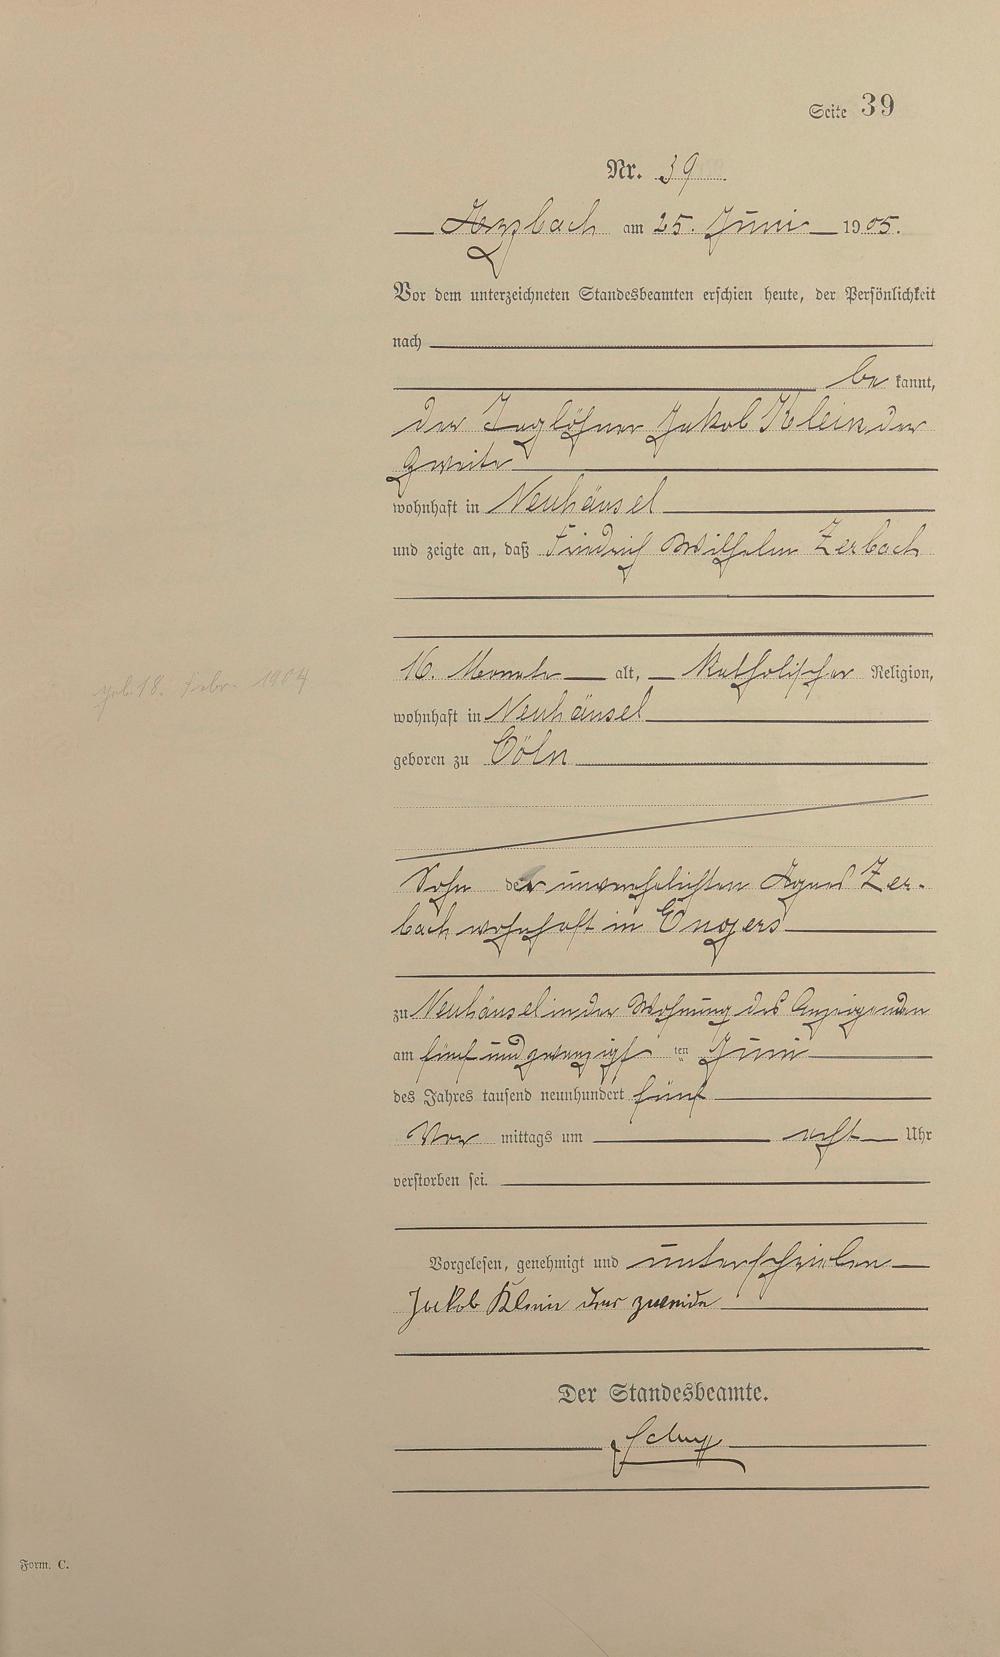 Seite 39
Nr. 39
Arzbach am 25. Juni 1905.
Vor dem unterzeichneten Standesbeamten erschien heute, der Persönlichkeit
nach
be kannt,
der Taglöhner Jakob Klein der
Zweite
wohnhaft in Neuhäusel
und zeigte an, daß Friedrich Wilhelm Zerbach
16. Monate alt, Katholischer Religion,
geb. 18. Febr. 1904
wohnhaft in Neuhäusel
geboren zu Cöln
Sohn der unverehelichten Agnes Zer-
bach wohnhaft in Engers
zu Neuhäusel in der Wohnung des Anzeigenden
am fünf und zwanzigst ten Juni
des Jahres tausend neunhundert fünf
Vor mittags um acht Uhr
verstorben sei.
Vorgelesen, genehmigt und unterschrieben
Jackob Klein der zweide
Der Standesbeamte.
Form. C.